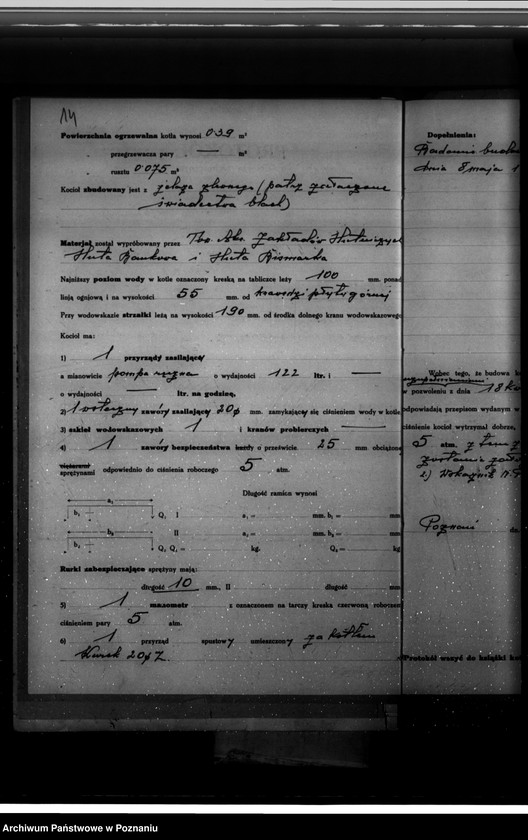 14
Powierzchnia ogrzewalna kotła wynosi 0.39 m²
„ przegrzewacza pary — m²
„ rusztu 0.075 m²
Kocioł zbudowany jest z żelaza zlewnego (patrz załączone
świadectwa blach)
Materjał został wypróbowany przez Tow. Akc. Zakładów Hutniczych
Huta Bankowa i Huta Bismarka
Najniższy poziom wody w kotle oznaczony kreską na tabliczce leży 100 mm. ponad
linją ogniową i na wysokości 55 mm. od krawędzi płyty górnej
Przy wodowskazie strzałki leżą na wysokości 190 mm. od środka dolnego kranu wodowskazowego
Kocioł ma:
1) 1 przyrządy zasilający
a mianowicie pompa ręczna o wydajności 122 ltr. i —
o wydajności — ltr. na godzinę.
2) 1 zawory zasilający 20 ø mm. zamykający się ciśnieniem wody w kotle
3) szkieł wodowskazowych 1 i kranów probierczych —
4) 1 zawory bezpieczeństwa każdy o prześwicie 25 mm obciążone
ciężarami
sprężynami odpowiednio do ciśnienia roboczego 5 atm.
Długość ramien wynosi
a₁
b₁ Q₁ I a₁ = mm. b₁ = mm
b₂
b₁ Q₁ II a₂ = mm. b₂ = mm
Q₁ Q₁ = kg. Q₂ = kg
Rurki zabezpieczające sprężyny mają:
długość 10 mm., II długość mm
5) 1 manometr z oznaczonem na tarczy kreską czerwoną roboczem
ciśnieniem pary 5 atm.
6) 1 przyrząd spustowy umieszczony za kotłem
Kurek 20 ø
Dopełnienia:
Badanie
dnia 8 maja 1
Wobec tego, że budowa k
w pozwoleniu z dnia 18
odpowiadają przepisom wydanym w
ciśnienie kocioł wytrzymał dobrze,
5 atm. z tem
2) Wskaźnik
Poznań dn.
Protokół wszyć do książki ko
Archiwum Państwowe w Poznaniu